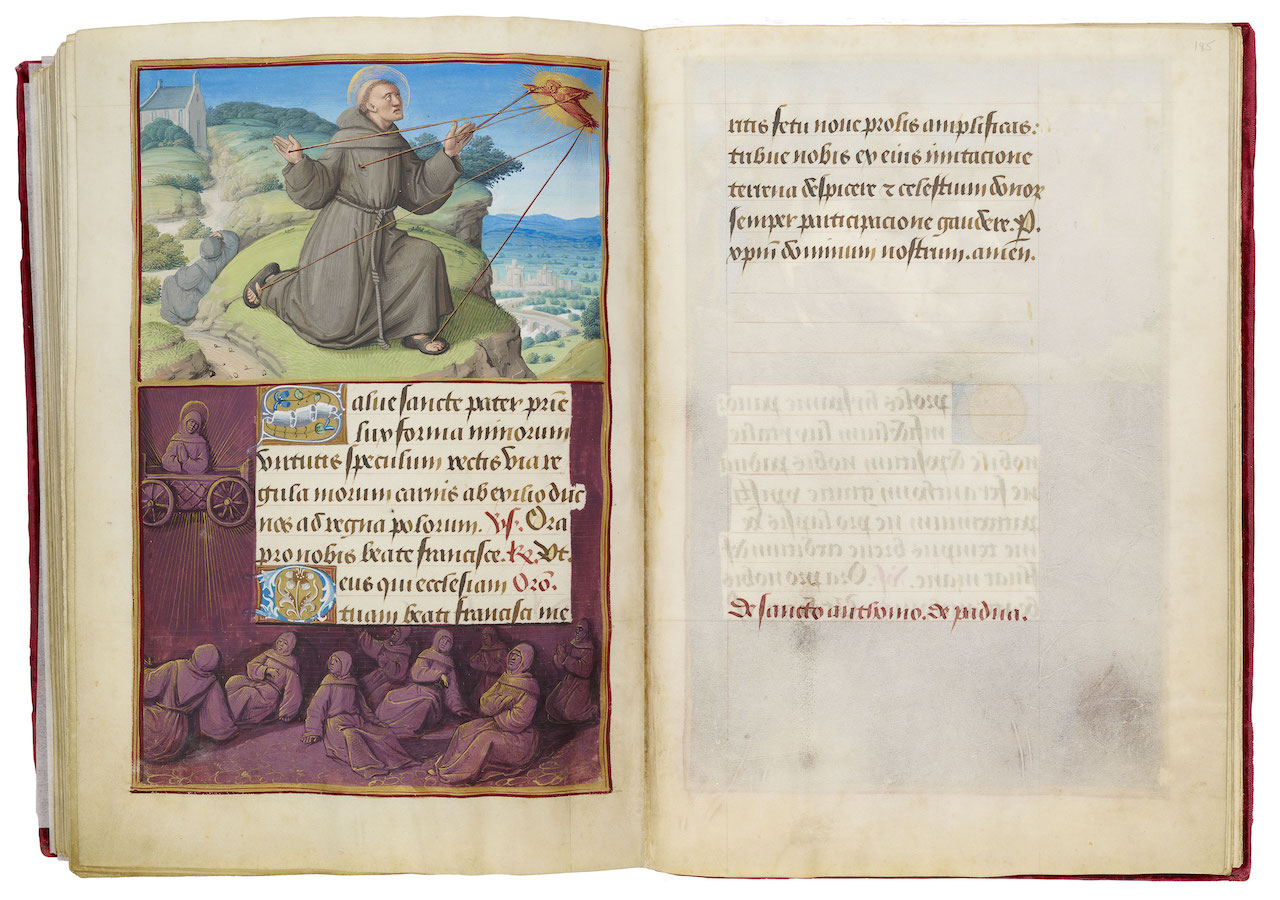 Salue sancte pater prīe
lux forma minorum
virtutis speculum rectis via re
gula morum carnis ab exilio duc
nos ad regna polorum. V̷s. Ora
pro nobis beate francisce. R̷. Vt.
Deus qui ecclesiam Orō.
tuam beati francisci me
185
ritis fetu noue prolis amplificas:
tribue nobis ex eius imitacione
terrena despicere ⁊ celestium donor
semper participacione gaudere. P̱.
xp̄m dominum nostrum. amen.
De sancto anthonio. de padua.